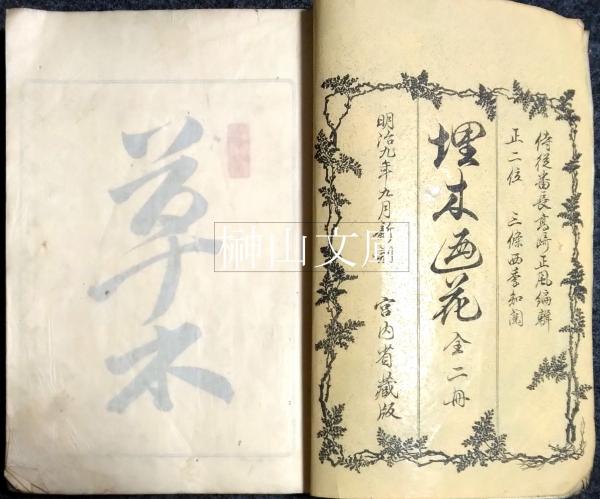 侍従番長高崎正風編輯
正二位 三條西季知閲
埋木廼花 全二冊
明治九年九月新刻 宮内省蔵版
草木
榊山文庫